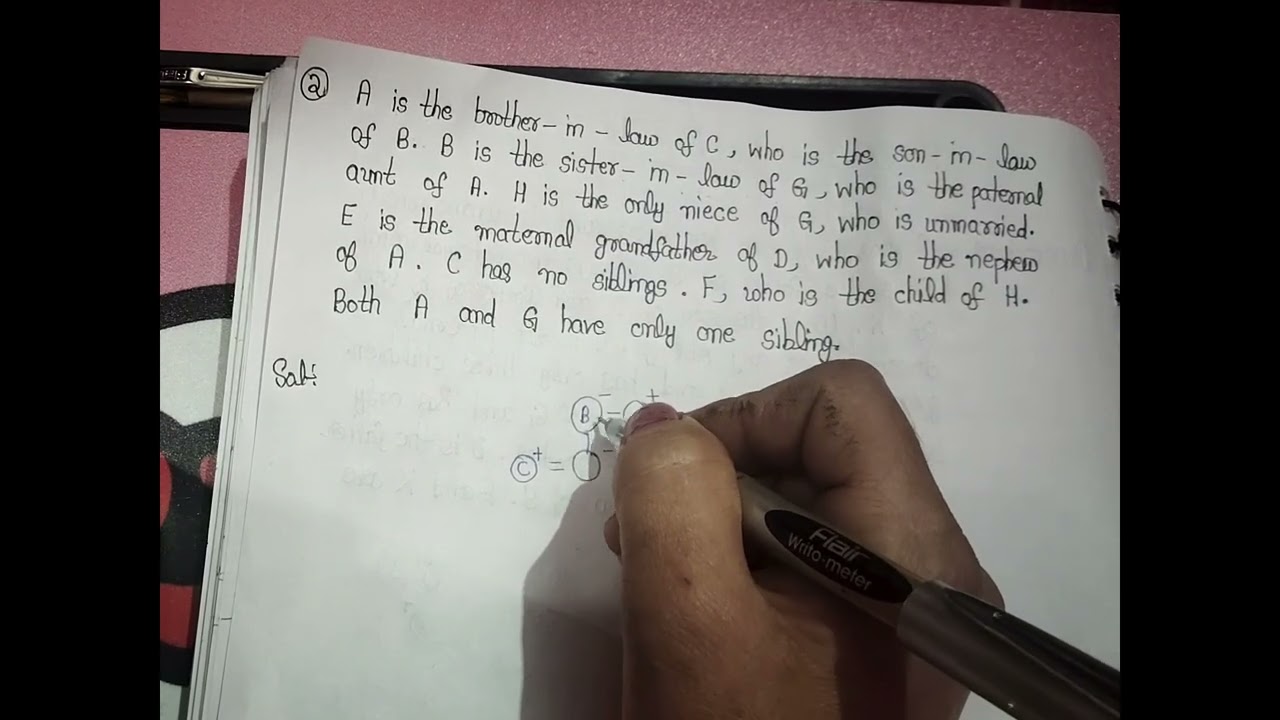 ② A is the brother-in-law of C, who is the son-in-law
of B. B is the sister-in-law of G, who is the paternal
aunt of A. H is the only niece of G, who is unmarried.
E is the maternal grandfather of D, who is the nephew
of A. C has no siblings. F, who is the child of H.
Both A and G have only one sibling.
Sol:
B - = +
C + = -
Flair
Writo-meter